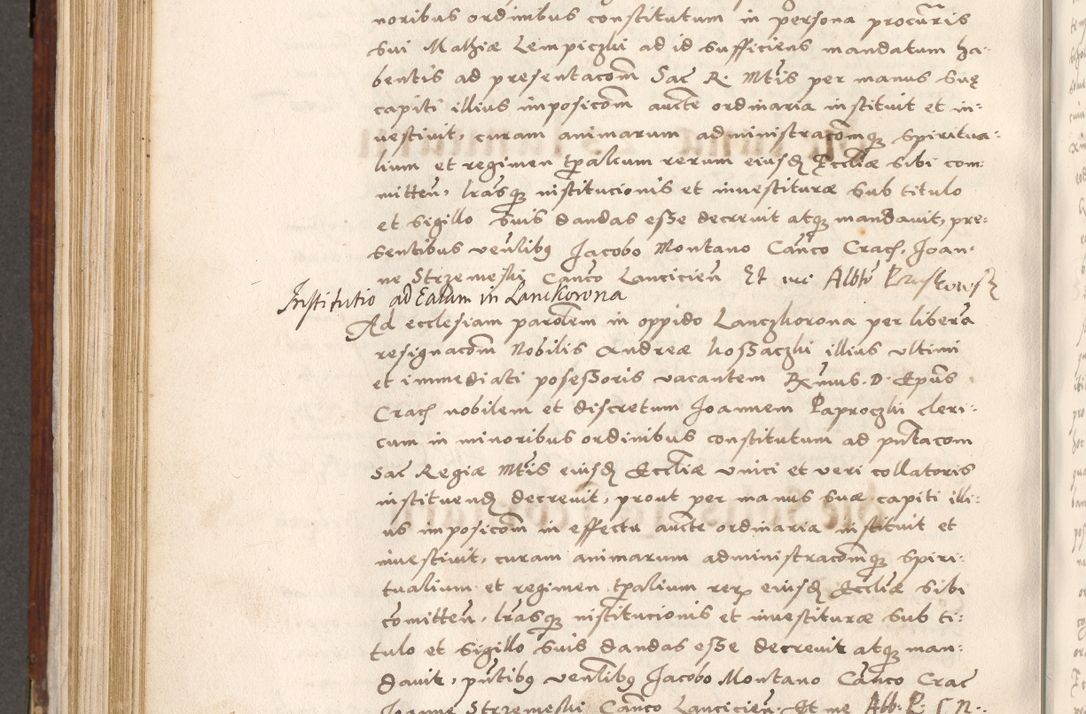 noribus ordinibus constitutum in persona procuris
sui Mathiæ Lempiczki ad id sufficiens mandatum ha-
bentis ad presentacom̄ Sac R. Mtis per manus suę
capiti illius imposicom̄ aucte ordinaria instituit et in-
uestiuit, curam animarum administracom̄q3 spiritua-
lium et regimen tp̄alium rerum eiusd Eccliæ sibi com-
mitten̄, lr̄asq3 institucionis et inuestituræ sub titulo
et sigillo suis dandas esse decreuit atq3 mandauit, pre-
sentibus ven̄libq Jacobo Montano Can̄co Crac̄, Joan-
ne Strzemeski Can̄co Lancicien̄ Et me Albto
Institutio ad Ecclam in Lanckorona
Ad ecclesiam parolem in oppido Lanczkorona per liberā
resignacom̄ Nobilis Andreæ kossaczki illius vltimi
et immediati posessoris vacantem Rx̄mus. D. Epūs
Crac̄ nobilem et discretum Joannem Paproczki cleri-
cum in minoribus ordinibus constitutum ad pn̄tacom
Sac Regiæ Mtis eiusd Eccliæ vnici et veri collatoris
instituend decreuit, prout per manus suæ capiti illi-
us imposicom̄ in effectu aucte ordinaria instituit et
inuestiuit, curam animarum administracom̄q3 spiri-
tualium et regimen tp̄alium rerx eiusd Eccliæ sibi
com̄itten̄, lr̄asq3 institucionis et inuestituræ sub ti-
tulo et sigillo suis dandas esse decreuit atq3 man-
dauit, pn̄tibq ven̄libq Jacobo Montano Can̄co Crac
Joanne Strzemeski Can̄co Lancicien̄. Et me Alb. P. S N.